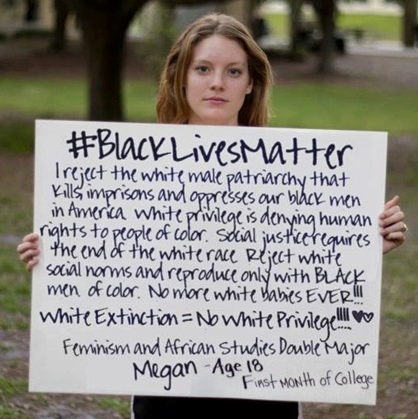 #BlackLivesMatter
I reject the white male patriarchy that
kills, imprisons and oppresses our black men
in America. White privilege is denying human
rights to people of color. Social justice requires
the end of the white race. Reject white
social norms and reproduce only with BLACK
men of color. No more white babies EVER!!!
White Extinction = No White Privilege!!!! ♥♥
Feminism and African Studies Double Major
Megan - Age 18
First Month of College